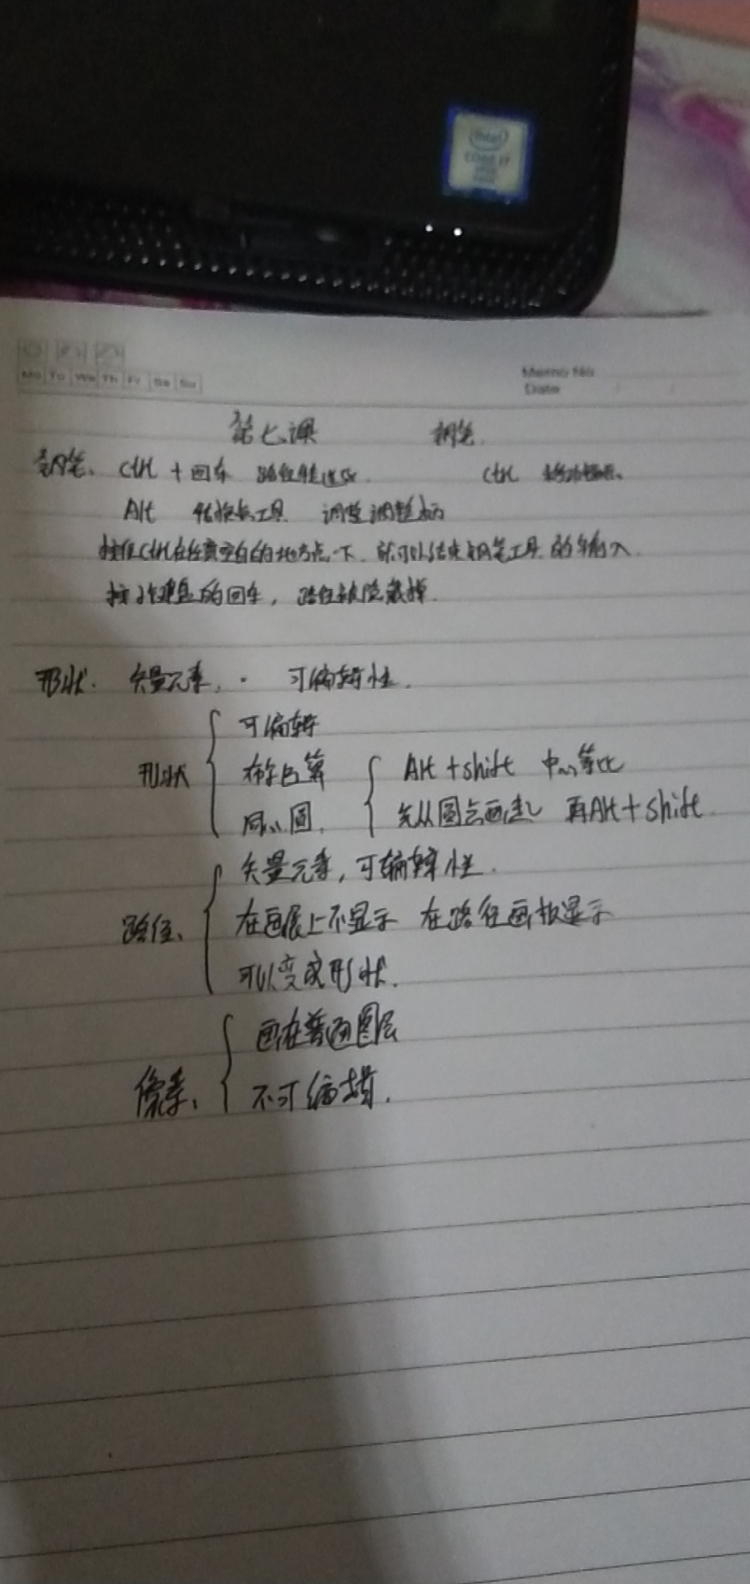 intel
CORE i7
Mo Tu We Th Fr Sa Su
Memo No.
Date
第七课 钢笔.
钢笔、 ctrl + 回车 路径转选区. ctrl
Alt 转换点工具 调整调整柄
按住Ctrl在任意空白的地方点一下. 就可以结束钢笔工具 的输入.
按下键盘的回车, 路径被隐藏掉.
形状. 矢量元素, . 可编辑性.
形状
可编辑
布尔运算
Alt + shift 中心等比
同心圆.
先从圆点画 再Alt + shift.
矢量元素, 可编辑性.
路径、
在画层上不显示 在路径画板显示
可以变成形状.
画在普通图层
像素、
不可编辑.